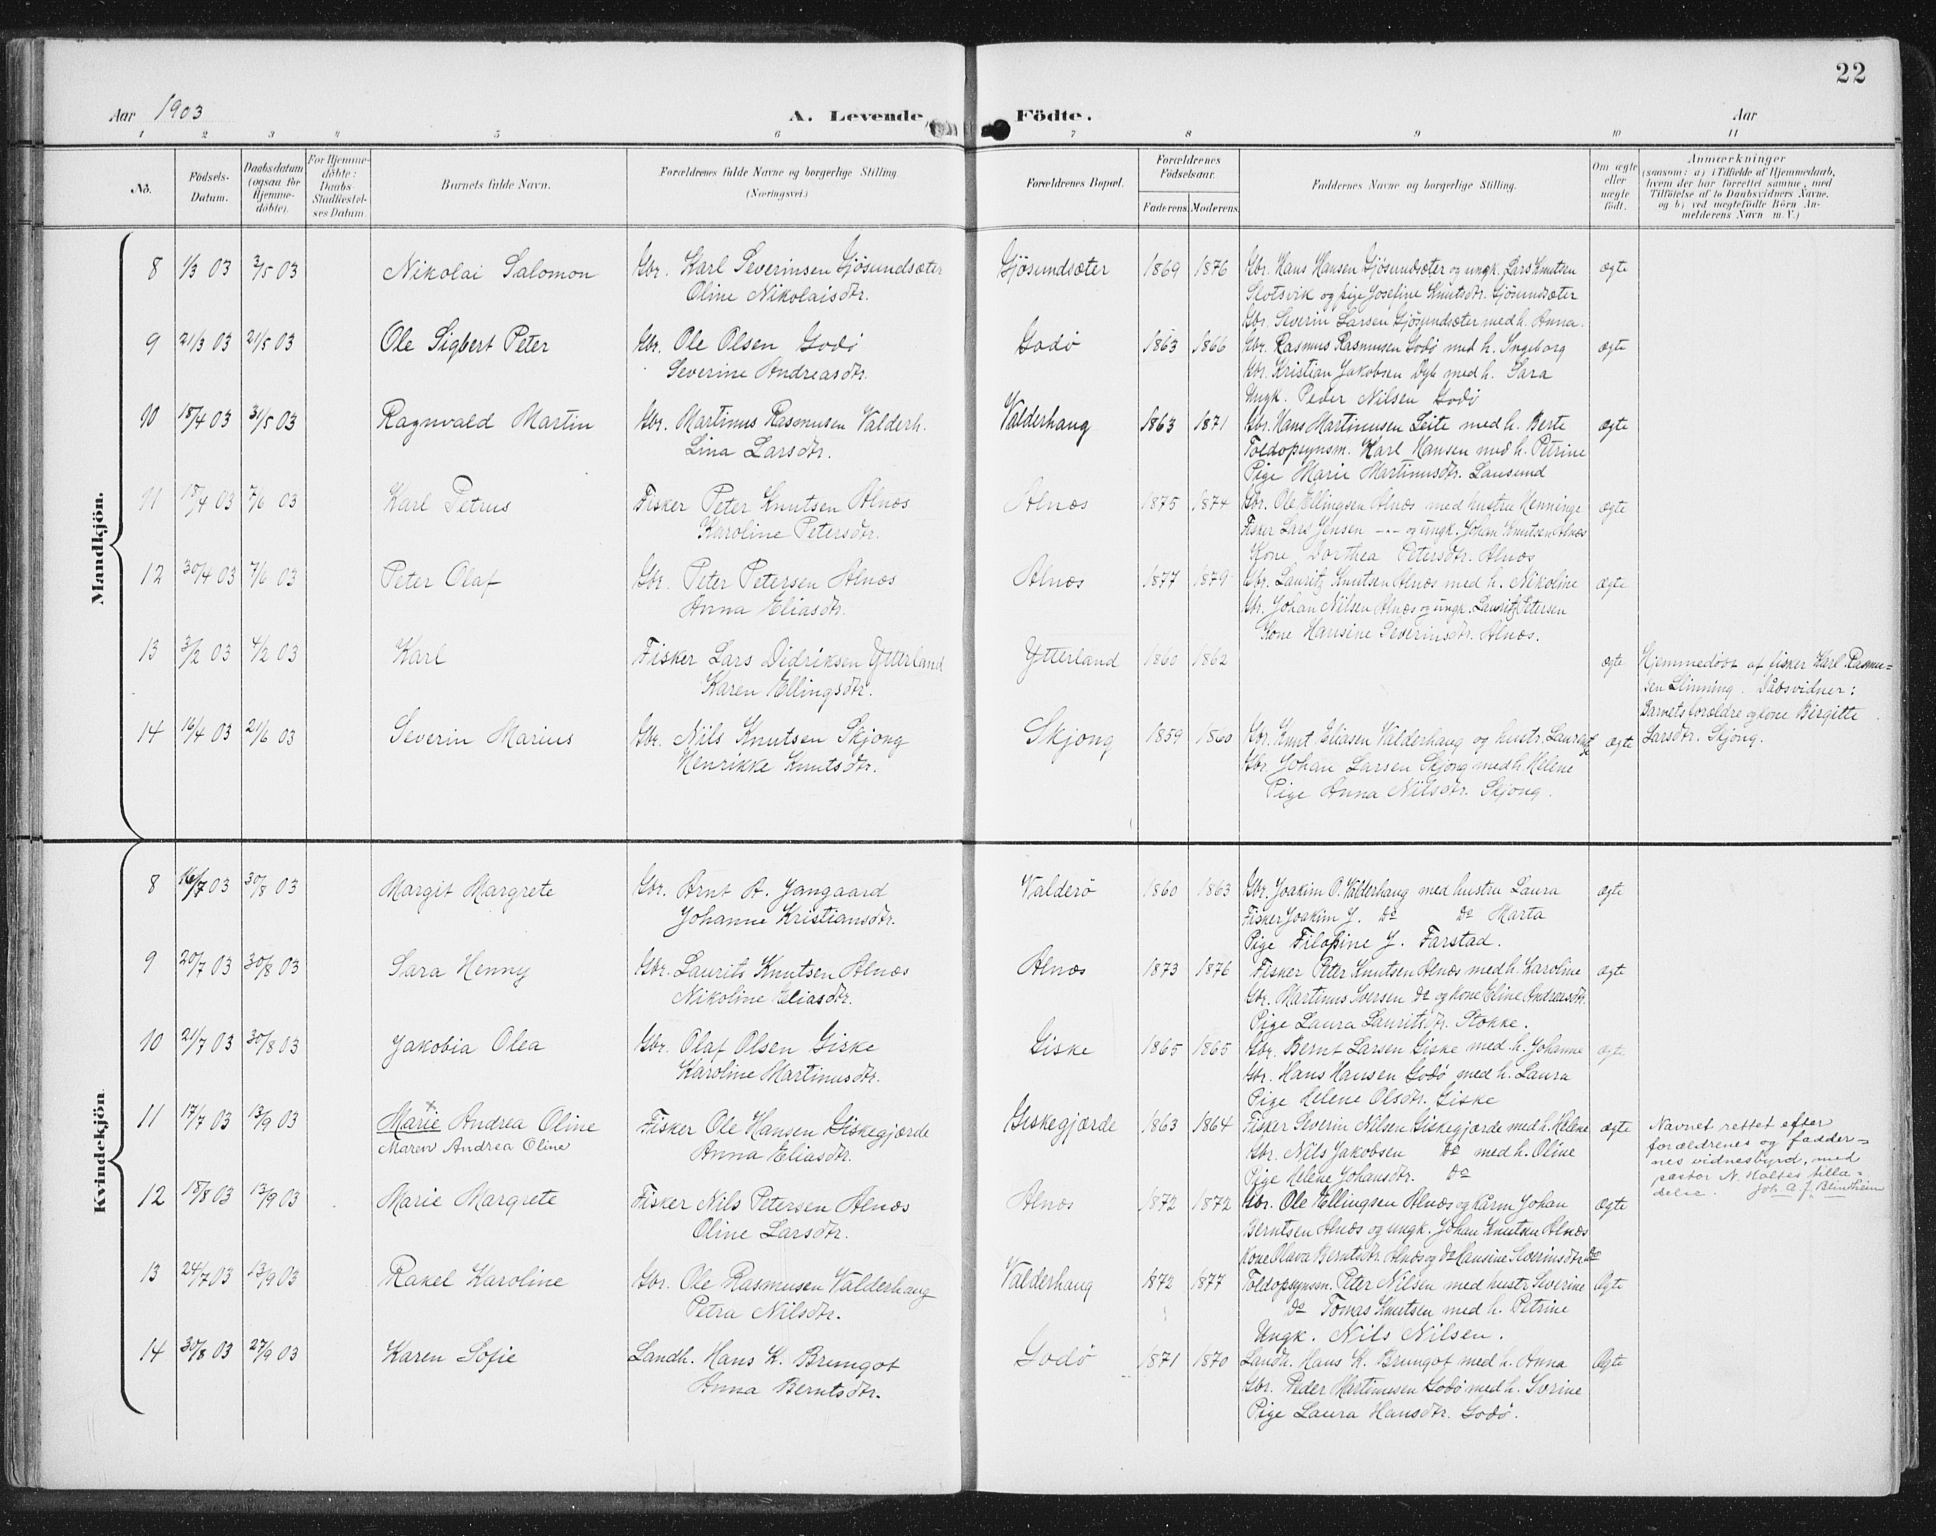 22
Aar 1903
A. Levende Födte.
Aar
1 2 3 4 5 6 7 8 9 10 11
No.
Födsels-Datum.
Daabsdatum (ogsaa for Hjemme-döbte).
For Hjemme-döbte: Daabs-Stadfæstel-ses Datum
Barnets fulde Navn.
Forældrenes fulde Navne og borgerlige Stilling. (Næringsvei.)
Forældrenes Bopæl.
Forældrenes Födselsaar.
Faderens. Moderens.
Faddernes Navne og borgerlige Stilling.
Om ægte eller uægte födt.
Anmærkninger
(saasom: a) i Tilfælde af Hjemmedaab,
hvem der har forrettet samme, med
Tilföielse af to Daabsvidners Navne,
og b) ved uægtefödte Börn An-
melderens Navn m. V.)
Mandkjön.
8 1/3 03 3/5 03 Nikolai Salomon Gbr. Karl Severinsen Gjösundsæter Gjösundsæter 1869 1876 Gbr. Hans Hansen Gjösundsæter og ungk. Lars Knutsen ægte
Oline Nikolaisdtr. Slotsvik og pige Josefine Knutsdtr. Gjösundsæter
Gbr. Severin Larsen Gjösundsæter med h. Anna.
9 21/3 03 21/5 03 Ole Sigbert Peter Gbr. Ole Olsen Godö Godö 1863 1866 Gbr. Rasmus Rasmusen Godö med h. Ingeborg ægte
Severine Andreasdtr. Gbr. Kristian Jakobsen Dyb med h. Sara
Ungk. Peder Nilsen Godö
10 18/4 03 31/5 03 Ragnvald Martin Gbr. Martinus Rasmusen Valderh. Valderhaug 1863 1871 Gbr. Hans Martinusen Leite med h. Berte ægte
Lina Larsdtr. Toldopsynsm. Karl Hansen med h. Petrine
Pige Marie Martinusdtr. Lausund
11 15/4 03 7/6 03 Karl Petrus Fisker Peter Knutsen Alnæs Alnæs 1875 1874 Gbr. Ole Ellingsen Alnæs med hustru Henninge ægte
Karoline Petersdtr. Fisker Lars Jensen --- og ungk. Johan Knutsen Alnæs
Kone Dorthea Petersdtr. Alnæs
12 30/4 03 7/6 03 Peter Olaf Gbr. Peter Petersen Alnæs Alnæs 1877 1879 Gbr. Lauritz Knutsen Alnæs med h. Nikoline ægte
Anna Eliasdtr. Gbr. Johan Nilsen Alnæs og ungk. Lauritz Petersen
Kone Hansine Severinsdtr. Alnæs.
13 3/2 03 4/2 03 Karl Fisker Lars Didriksen Ytterland Ytterland 1860 1862 ægte Hjemmedöbt af fisker Karl Rasmu-
Karen Ellingsdtr. sen Slinning. Dåbsvidner:
Barnets forældre og kone Birgitte
Larsdtr. Skjong.
14 16/4 03 21/6 03 Severin Marius Gbr. Nils Knutsen Skjong Skjong 1859 1860 Gbr. Knut Eliasen Valderhaug og hustr. Laurentze ægte
Henrikke Knutsdtr. Gbr. Johan Larsen Skjong med h. Helene
Pige Anna Nilsdtr. Skjong.
Kvindekjön.
8 16/7 03 30/8 03 Margit Margrete Gbr. Arnt A. Jangaard Valderö 1860 1863 Gbr. Joakim O. Valderhaug med hustru Laura ægte
Johanne Kristiansdtr. Fisker Joakim J. Do Do Marta
Pige Filopine J. Farstad.
9 20/7 03 30/8 03 Sara Henny Gbr. Laurits Knutsen Alnæs Alnæs 1873 1876 Fisker Peter Knutsen Alnæs med h. Karoline ægte
Nikoline Eliasdtr. Gbr. Martinus Iversen Do og kone Eline Andreasdtr.
Pige Laura Lauritsdtr. Stokke.
10 21/7 03 30/8 03 Jakobia Olea Gbr. Olaf Olsen Giske Giske 1865 1865 Gbr. Bernt Larsen Giske med h. Johanne ægte
Karoline Martinusdtr. Gbr. Hans Hansen Godö med h. Laura
Pige Helene Olsdtr. Giske
11 17/7 03 13/9 03 Marie x Andrea Oline Fisker Ole Hansen Giskegjærde Giskegjærde 1863 1864 Fisker Severin Nilsen Giskegjærde med h. Helene ægte Navnet rettet efter
Maren Andrea Oline Anna Eliasdtr. Gbr. Nils Jakobsen Do med h. Oline forældrenes og fadder-
Pige Helene Johansdtr. Do nes vidnesbyrd, med
pastor N. Holtes tilla-
delse. Joh. A. J. Blindheim
12 18/8 03 13/9 03 Marie Margrete Fisker Nils Petersen Alnæs Alnæs 1872 1872 Gbr. Ole Ellingsen Alnæs og Kårm. Johan ægte
Oline Larsdtr. Berntsen Alnæs og ungk. Johan Knutsen Alnæs
Kone Olava Berntsdtr. Alnæs og Do Hansine Sverinsdtr. Do
13 24/7 03 13/9 03 Rakel Karoline Gbr. Ole Rasmusen Valderhaug Valderhaug 1872 1877 Toldopsynsm. Peter Nilsen med hustr. Severine Ægte
Petra Nilsdtr. Do Tomas Knutsen med h. Petrine
Ungk. Nils Nilsen.
14 30/8 03 27/9 03 Karen Sofie Landh. Hans K. Brungot Godö 1871 1870 Landh. Hans K. Brungot med h. Anna Ægte
Anna Berntsdtr. Gbr. Peder Martinusen Godö med h. Sverine
Pige Laura Hansdtr. Godö.